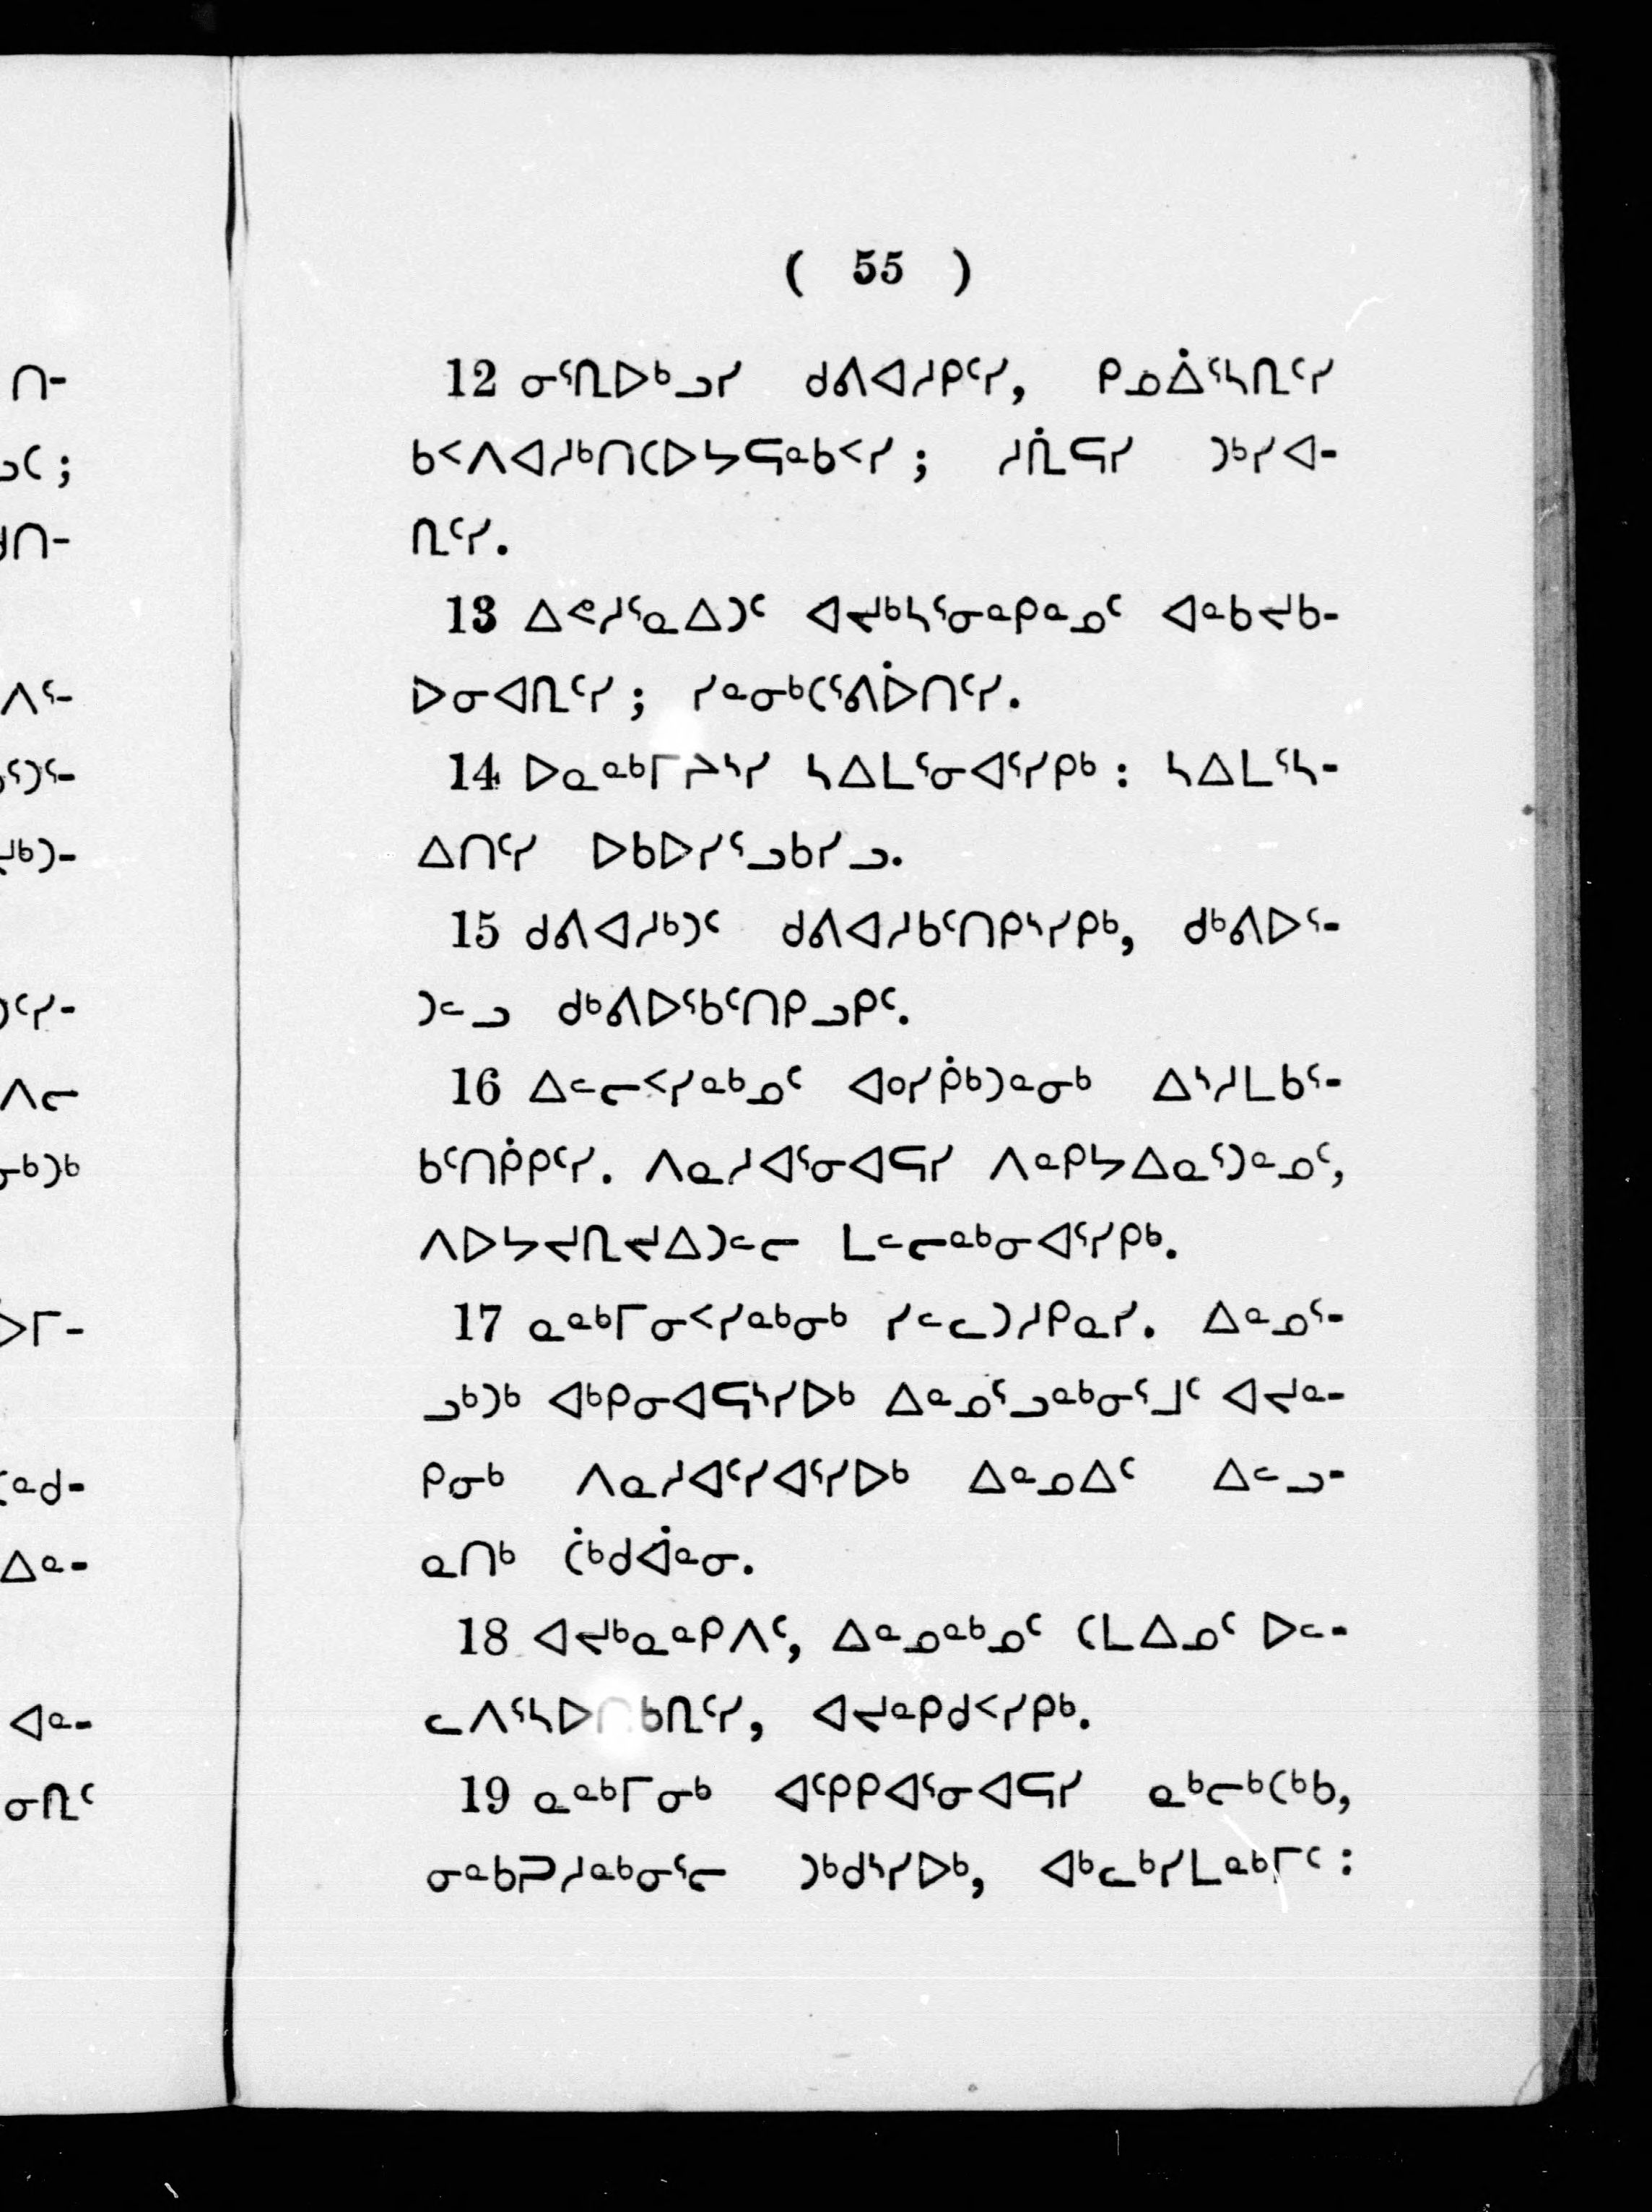 ( 55 )
12 ᓂᕐᒐᐅᒃᓗᓯ ᑯᕕᐊᓱᑭᑦᓯ, ᑭᓄᐄᕐᓴᒐᑦᓯ
ᑲᑉᐱᐊᓱᒃᑎᑕᐅᔭᕋᓐᑲᑉᓯ; ᓱᒑᕋᓯ ᑐᒃᓯᐊ-
ᒐᑦᓯ.
13 ᐃᕙᓱᕐᓇᐃᑐᑦ ᐊᔪᒃᓴᕐᓂᓐᑭᓐᓄᑦ ᐊᓐᑲᔪᑲ-
ᐅᓂᐊᒐᑦᓯ; ᓯᓐᓂᒃᑕᕐᕕᐆᑎᑦᓯ.
14 ᐅᓇᓐᒃᒥᔨᔅᓯ ᓴᐃᒪᕐᓂᐊᕐᓯᑭᒃ: ᓴᐃᒪᕐᓴ-
ᐃᑎᑦᓯ ᐅᑲᐅᓯᕐᓗᑲᓯᓗ.
15 ᑯᕕᐊᓱᒃᑐᑦ ᑯᕕᐊᓱᑲᑦᑎᑭᔅᓯᑭᒃ, ᑯᒃᕕᐅᕐ-
ᑐᓪᓗ ᑯᒃᕕᐅᕐᑲᑦᑎᑭᓗᑭᑦ.
16 ᐃᓪᓕᑉᓯᓐᒃᓄᑦ ᐊᐤᓯᑮᒃᑐᓐᓂᒃ ᐃᔅᓱᒪᑲᕐ-
ᑲᑦᑎᑮᑭᑦᓯ. ᐱᓇᓱᐊᕐᓂᐊᕋᓯ ᐱᓐᑭᔭᐃᓇᕐᑐᓐᓄᑦ,
ᐱᐅᔭᔪᒐᔪᐃᑐᓪᓕ ᒪᓪᓕᓐᒃᓂᐊᕐᓯᑭᒃ.
17 ᓇᓐᒃᒥᓂᑉᓯᓐᒃᓂᒃ ᓯᓪᓚᑐᓱᑭᓇᓯ. ᐃᓐᓄᕐ-
ᓗᒃᑐᒃ ᐊᒃᑭᓂᐊᕋᔅᓯᐅᒃ ᐃᓐᓄᕐᓗᓐᒃᓂᕐᒧᑦ ᐊᔪᓐ-
ᑭᓂᒃ ᐱᓇᓱᐊᑦᓯᐊᕐᓯᐅᒃ ᐃᓐᓄᐃᑦ ᐃᓪᓗ-
ᓇᑎᒃ ᑖᒃᑯᐋᓐᓂ.
18 ᐊᔪᒃᓇᓐᑭᐱᑦ, ᐃᓐᓄᓐᒃᓄᑦ ᑕᒪᐃᓄᑦ ᐅᓪ-
ᓚᐱᕐᓴᐅᑎᑲᒐᑦᓯ, ᐊᔪᓐᑭᑯᑉᓯᑭᒃ.
19 ᓇᓐᒃᒥᓂᒃ ᐊᑦᑭᑭᐊᕐᓂᐊᕋᓯ ᓇᒃᓕᒃᑕᒃᑲ,
ᓂᓐᑲᕈᓱᓐᒃᓂᕐᓕ ᑐᒃᑯᔅᓯᐅᒃ, ᐊᒃᓚᒃᓯᒪᓐᒃᒥᑦ: